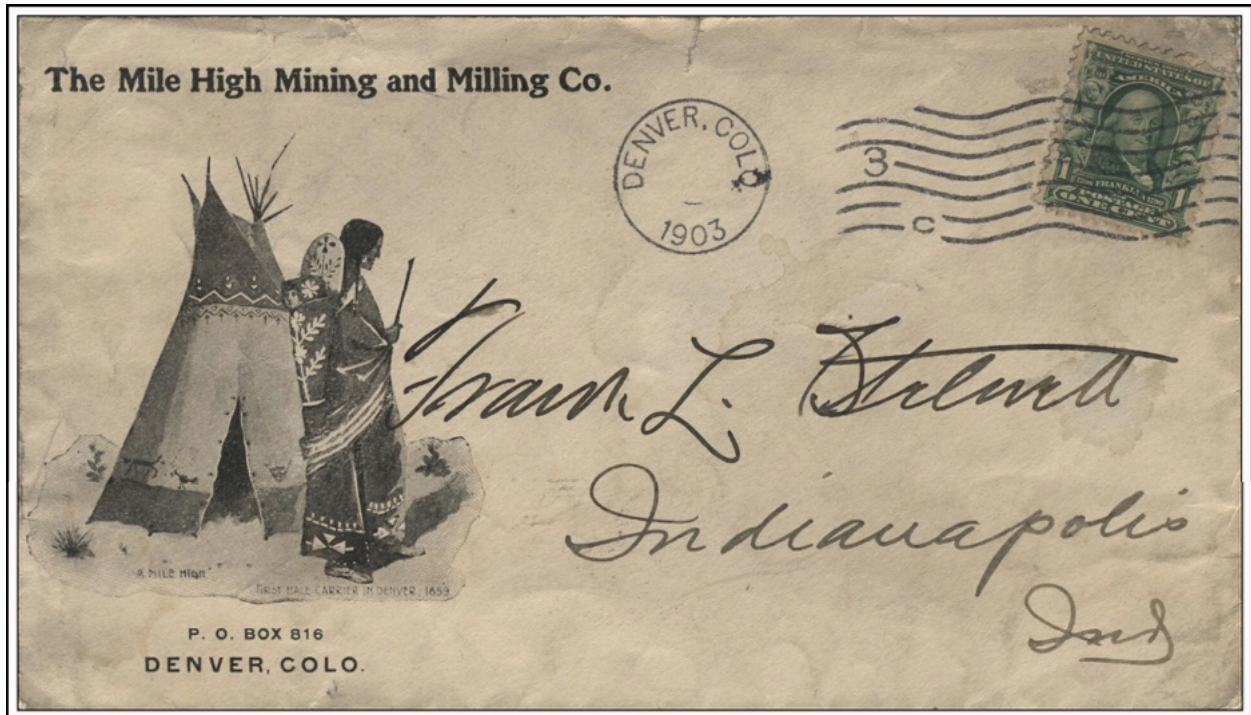 The Mile High Mining and Milling Co.
DENVER, COLO
1903
3
C
UNITED STATES OF
AMERICA
1 FRANKLIN 1
POSTAGE
ONE CENT
Frank L.
Indianapolis
Ind
A MILE HIGH
FIRST MALE CARRIER IN DENVER, 1859
P. O. BOX 816
DENVER, COLO.